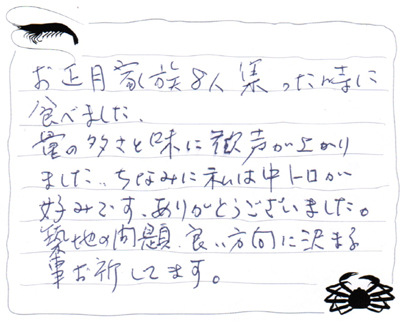 お正月家族8人集った時に
食べました、
量の多さと味に歓声が上がり
ました、ちなみに私は中トロが
好みです、ありがとうございました。
築地の問題、良い方向に決まる
事お祈してます。